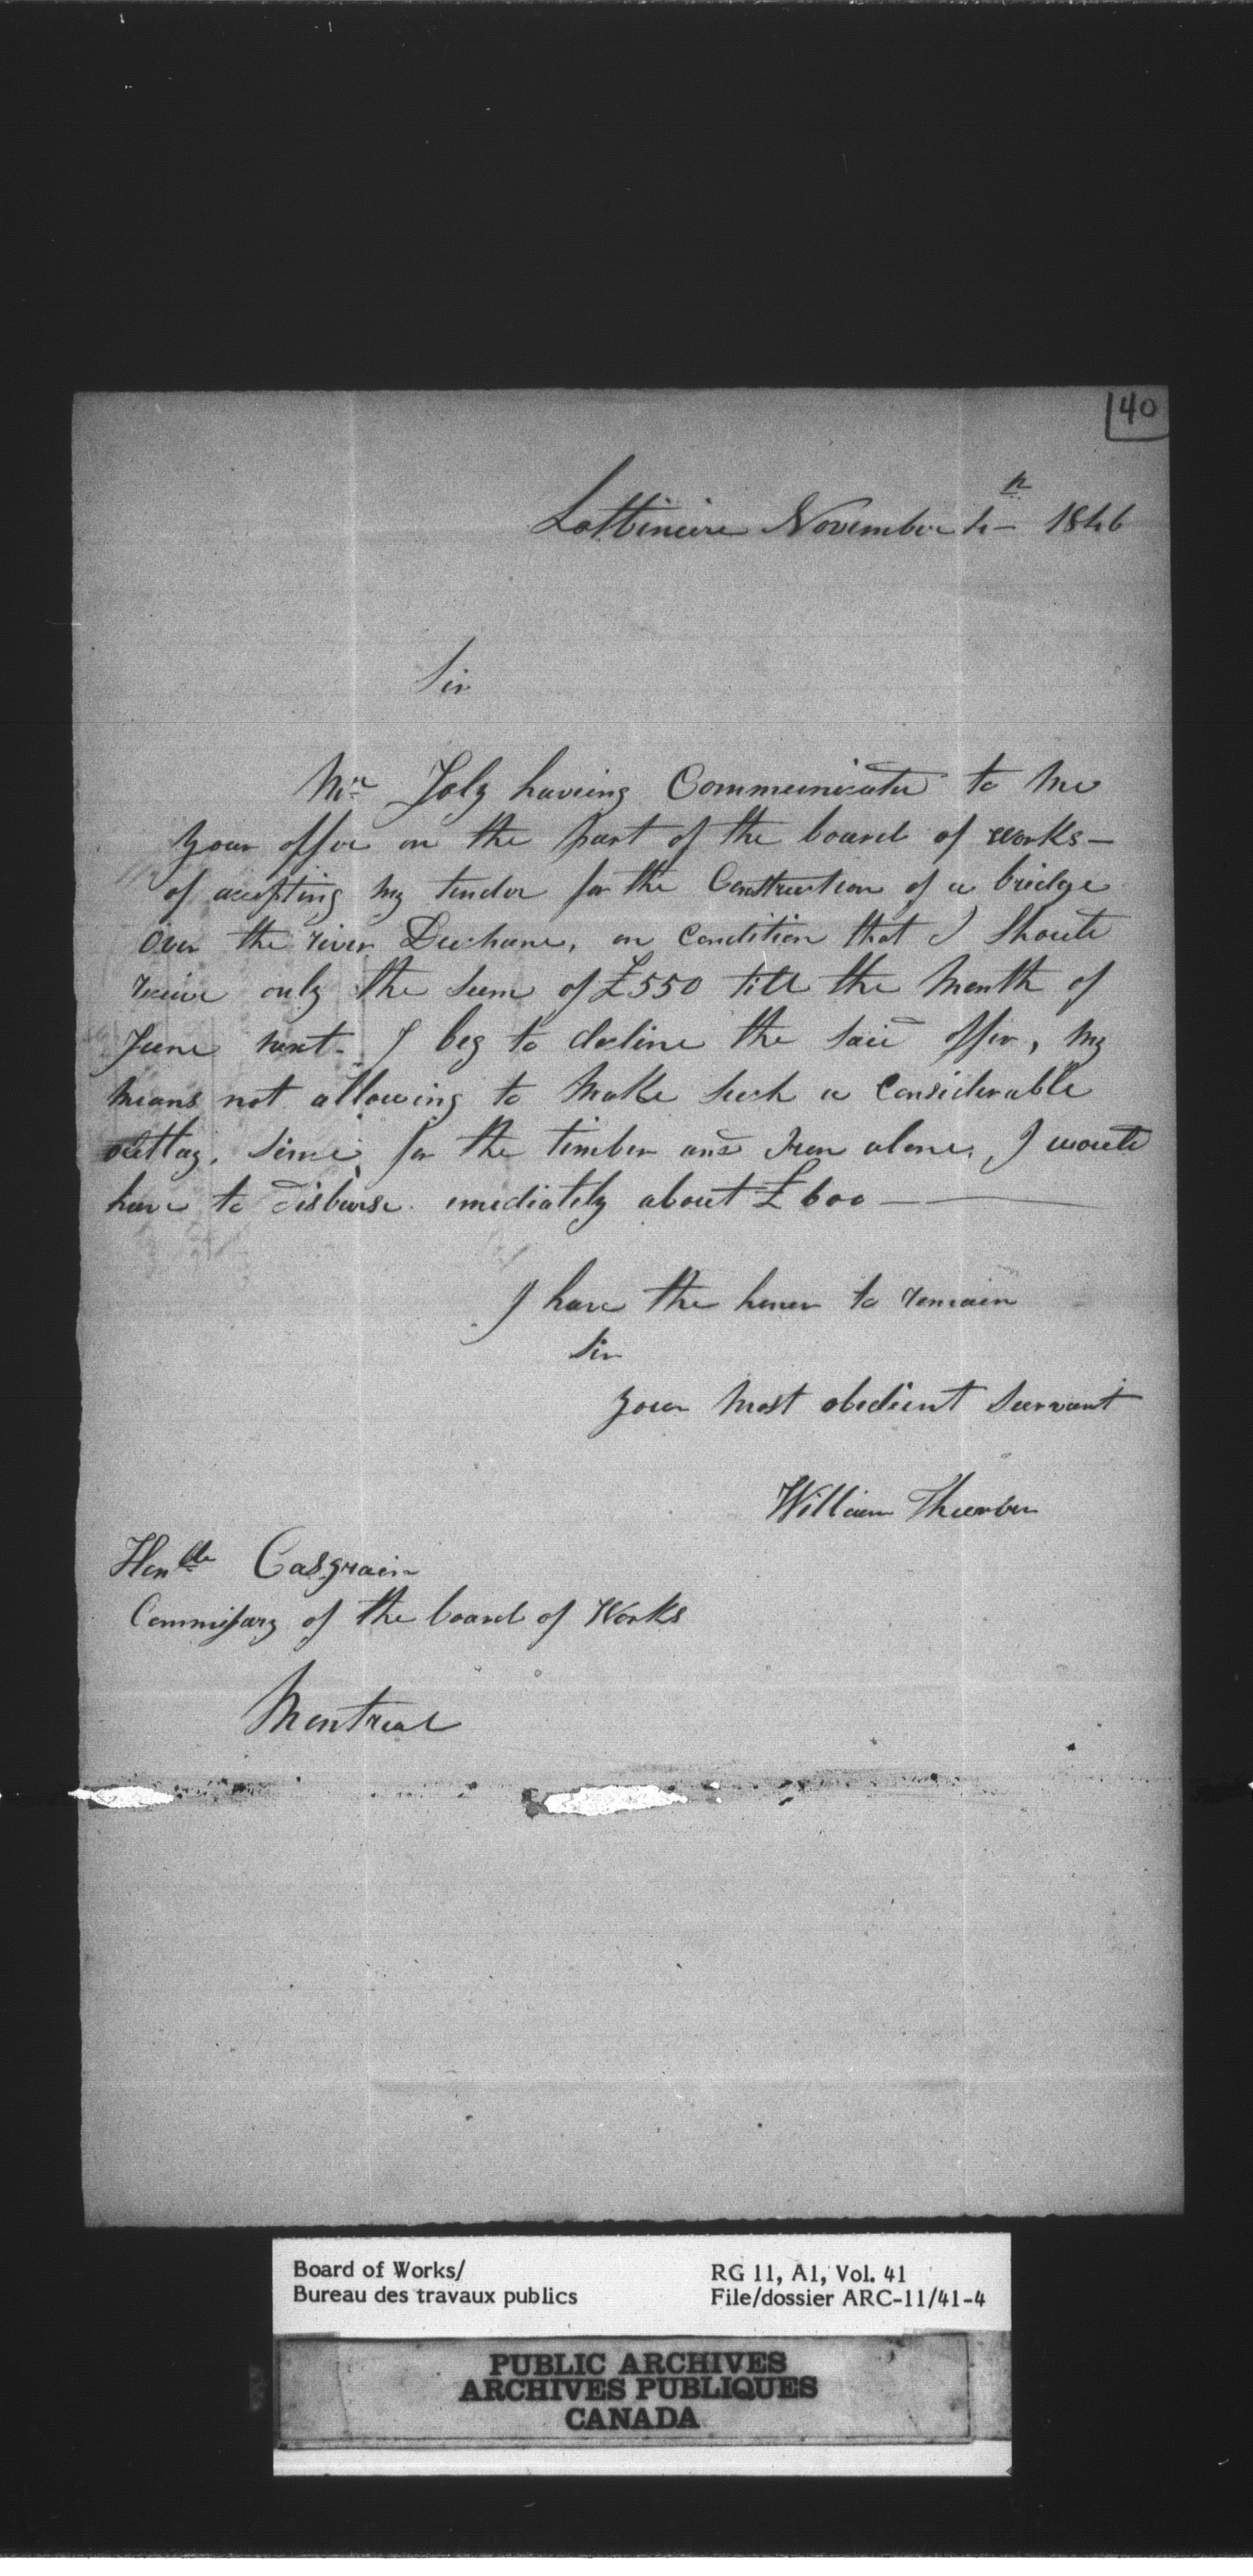 40
Lotbiniere November 4th 1846
Sir
Mr Joly having Communicated to me
your offer on the part of the board of works —
of accepting my tender for the Construction of a bridge
over the river Duchene, on Condition that I should
receive only the sum of £550 till the Month of
June next. I beg to decline the said offer, my
means not allowing to make such a Considerable
outlay, since, for the timber and Iron alone, I would
have to disburse imediately about £600 —
I have the honor to remain
Sir
your most obedient Servant
William Thurber
Honble Casgrain
Commissary of the board of Works
Montreal
Board of Works/
Bureau des travaux publics
RG 11, A1, Vol. 41
File/dossier ARC-11/41-4
PUBLIC ARCHIVES
ARCHIVES PUBLIQUES
CANADA